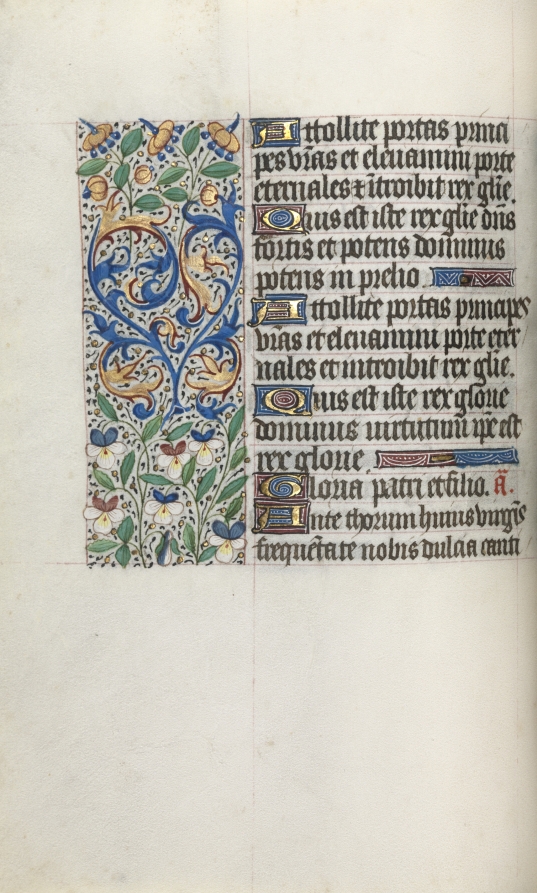 Attollite portas princi
pes vr̃as et eleuamini porte
eternales ⁊ ĩtroibit rex glĩe.
Quis est iste rex glĩe dñs
fortis et potens dominus
potens in prelio
Attollite portas principes
vr̃as et eleuamini porte eter
nales et introibit rex glĩe.
Quis est iste rex glorie
dominus uirtutum ip̃e est
rex glorie
Gloria patri et filio. ã.
Ante thorum huius virgĩs
frequẽtate nobis dulcia canti